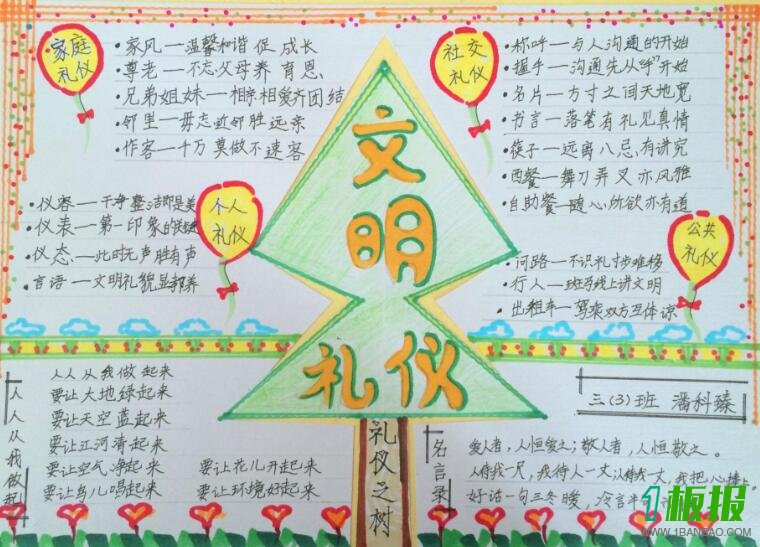 家庭
礼仪
·家风—温馨和谐促成长
·尊老—不忘父母养育恩
·兄弟姐妹—相亲相爱齐团结
·邻里—毋忘近邻胜远亲
·作客—千万莫做不速客
社交
礼仪
·称呼—与人沟通的开始
·握手—沟通先从"手"开始
·名片—方寸之间天地宽
·书言—落笔有礼见真情
·筷子—远离八忌,有讲究
·西餐—舞刀弄叉亦风雅
·自助餐—随心所欲亦有道
个人
礼仪
·仪容—干净整洁即是美
·仪表—第一印象的关键
·仪态—此时无声胜有声
·言语—文明礼貌显
公共
礼仪
·问路—不识礼寸步难移
·行人—斑马线上讲文明
·出租车—驾乘双方互体谅
文明
礼仪
礼仪之树
人人从我做起
人人从我做起来
要让大地绿起来
要让天空蓝起来
要让江河清起来
要让空气净起来
要让鸟儿唱起来
要让花儿开起来
要让环境好起来
三(3)班 潘科臻
名言录
爱人者,人恒爱之;敬人者,人恒敬之。
人待我一尺,我待人一丈
好话一句三冬暖,冷言半句
1板报
WWW.1BANBAO.COM